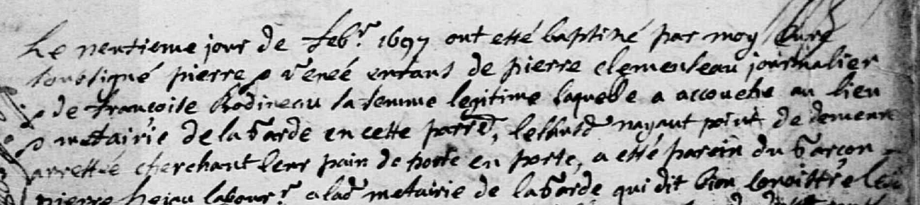 Le neufieme jour de febr. 1697 ont esté baptisé par moy Curé
soubsigné pierre & renée enfans de pierre clemenseau journalier
& de francoise Bodineau sa femme legitime laquelle a accouché au lieu
& metairie de la Garde en cette parr, lesdus nayant point de demeure
arrettée cherchant leur pain de porte en porte, a esté parein du Garcon
pierre labour. a lad metairie de la Garde qui dit bien conoittre